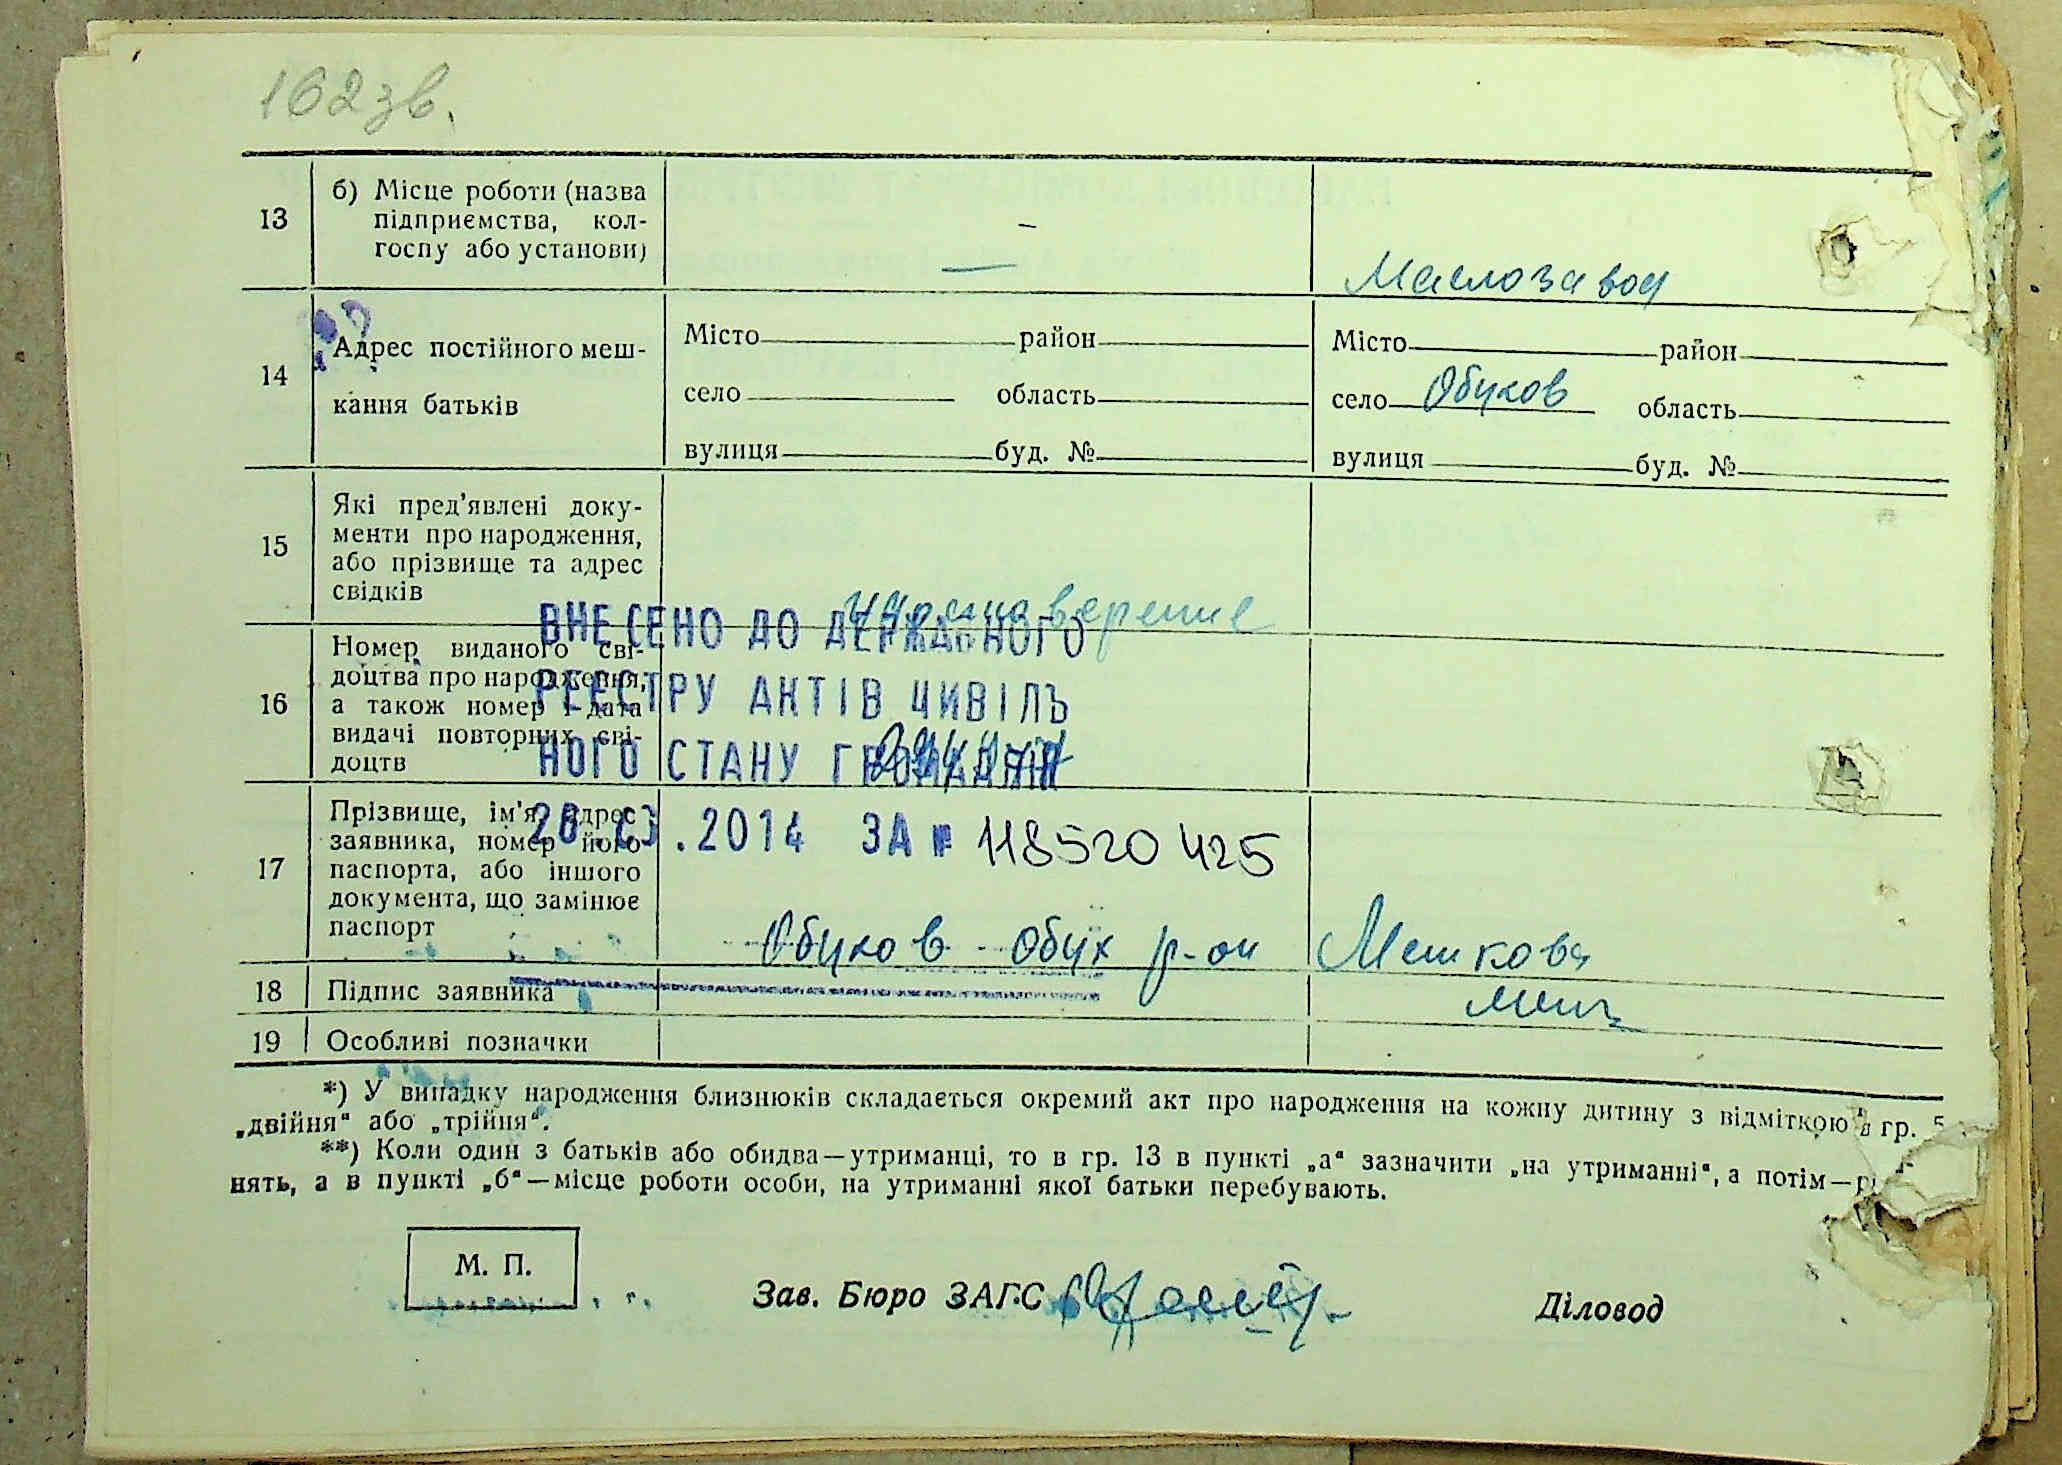 162зв.
13
б) Місце роботи (назва
підприємства, кол-
госпу або установи)
–
—
Маслозавод
14
Адрес постійного меш-
кання батьків
Місто район
село область
вулиця буд. №
Місто район
село Обухов область
вулиця буд. №
15
Які пред'явлені доку-
менти про народження,
або прізвище та адрес
свідків
16
Номер виданого сві-
доцтва про народження,
а також номер і дата
видачі повторних сві-
доцтв
ВНЕСЕНО ДО ДЕРЖАВНОГО
РЕЄСТРУ АКТІВ ЦИВІЛЬ
НОГО СТАНУ ГРОМАДЯН
.2014 ЗА № 118520425
17
Прізвище, ім'я, адрес
заявника, номер його
паспорта, або іншого
документа, що замінює
паспорт
Обухов Обух р-он
Мешкова
18
Підпис заявника
19
Особливі позначки
*) У випадку народження близнюків складається окремий акт про народження на кожну дитину з відміткою в гр. 5
„двійня“ або „трійня“.
**) Коли один з батьків або обидва—утриманці, то в гр. 13 в пункті „а“ зазначити „на утриманні“, а потім—
нять, а в пункті „б“—місце роботи особи, на утриманні якої батьки перебувають.
М. П.
Зав. Бюро ЗАГС
Діловод